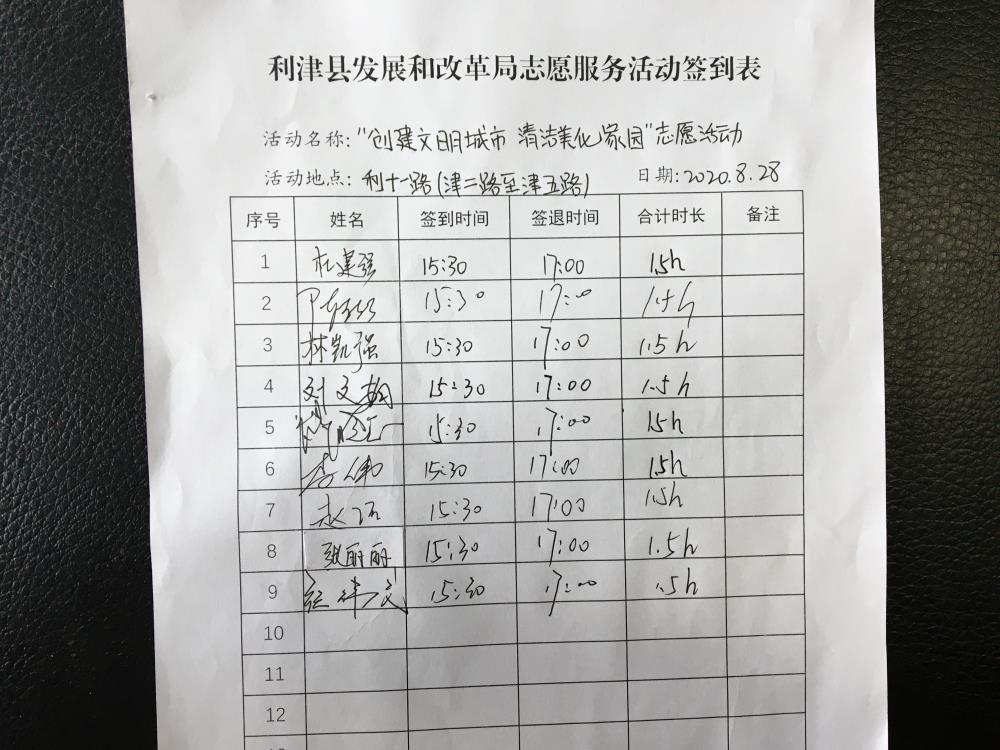 利津县发展和改革局志愿服务活动签到表
活动名称:"创建文明城市 清洁美化家园"志愿活动
活动地点: 利十一路(津二路至津五路) 日期:2020.8.28
序号 姓名 签到时间 签退时间 合计时长 备注
1 杜建强 15:30 17:00 1.5h
2 15:30 17:00 1.5h
3 林凯强 15:30 17:00 1.5h
4 刘文娟 15:30 17:00 1.5h
5 15:30 17:00 1.5h
6 李伟 15:30 17:00 1.5h
7 15:30 17:00 1.5h
8 张丽丽 15:30 17:00 1.5h
9 15:30 17:00 1.5h
10
11
12